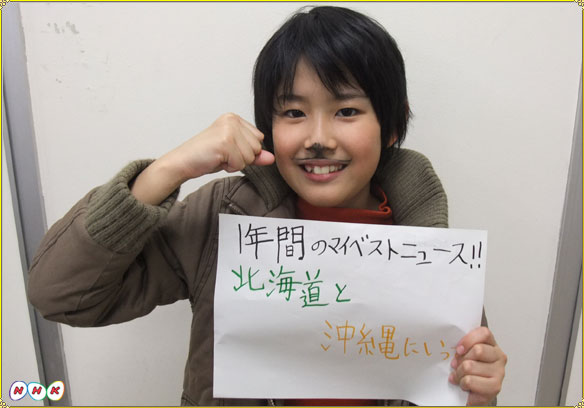 1年間のマイベストニュース!!
北海道と
沖縄にいっ
NHK